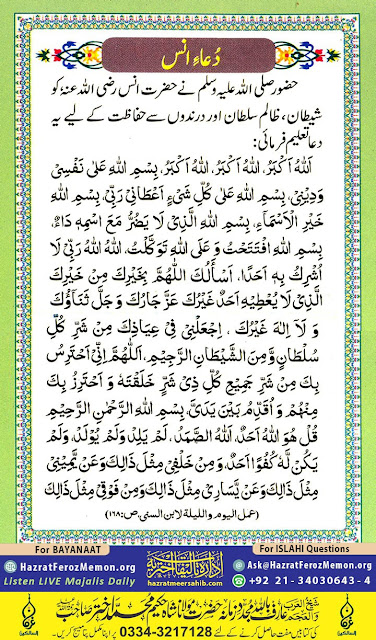 دُعاءِ انس
حضور صلی اللہ علیہ وسلم نے حضرت انس رضی اللہ عنہٗ کو
شیطان، ظالم سلطان اور درندوں سے حفاظت کے لیے یہ
دعا تعلیم فرمائی:
اَللّٰهُ اَكْبَرُ، اَللّٰهُ اَكْبَرُ، اَللّٰهُ اَكْبَرُ، بِسْمِ اللّٰهِ عَلٰى نَفْسِیْ
وَدِيْنِیْ، بِسْمِ اللّٰهِ عَلٰى كُلِّ شَیْءٍ اَعْطَانِیْ رَبِّیْ، بِسْمِ اللّٰهِ
خَيْرِ الْاَسْمَاءِ، بِسْمِ اللّٰهِ الَّذِیْ لَا يَضُرُّ مَعَ اسْمِهٖ دَاءٌ،
بِسْمِ اللّٰهِ افْتَتَحْتُ وَ عَلَى اللّٰهِ تَوَكَّلْتُ، اَللّٰهُ اَللّٰهُ رَبِّیْ لَا
اُشْرِكُ بِهٖ اَحَدًا، اَسْأَلُكَ اللّٰهُمَّ بِخَيْرِكَ مِنْ خَيْرِكَ
الَّذِیْ لَا يُعْطِيْهِ اَحَدٌ غَيْرُكَ عَزَّ جَارُكَ وَ جَلَّ ثَنَاؤُكَ
وَ لَا اِلٰهَ غَيْرُكَ ، اِجْعَلْنِیْ فِیْ عِيَاذِكَ مِنْ شَرِّ كُلِّ
سُلْطَانٍ وَّمِنَ الشَّيْطَانِ الرَّجِيْمِ، اَللّٰهُمَّ اِنِّیْ اَحْتَرِسُ
بِكَ مِنْ شَرِّ جَمِيْعِ كُلِّ ذِیْ شَرٍّ خَلَقْتَهٗ وَ اَحْتَرِزُ بِكَ
مِنْهُمْ وَ اُقَدِّمُ بَيْنَ يَدَیَّ، بِسْمِ اللّٰهِ الرَّحْمٰنِ الرَّحِيْمِ
قُلْ هُوَ اللّٰهُ اَحَدٌ، اَللّٰهُ الصَّمَدُ، لَمْ يَلِدْ وَلَمْ يُوْلَدْ، وَلَمْ
يَكُنْ لَّهٗ كُفُوًا اَحَدٌ، وَ مِنْ خَلْفِیْ مِثْلَ ذَالِكَ وَ عَنْ يَّمِيْنِیْ
مِثْلَ ذَالِكَ وَ عَنْ يَّسَارِیْ مِثْلَ ذَالِكَ وَ مِنْ فَوْقِیْ مِثْلَ ذَالِكَ
(عمل الیوم واللیلة لابن السنی ص:۱۶۸)
For BAYANAAT
HazratFerozMemon.org
Listen LIVE Majalis Daily
ادارۃ التالیفات اختریہ
hazratmeersahib.com
For ISLAHI Questions
Ask@HazratFerozMemon.org
+92 21 - 34030643 - 4
0334-3217128